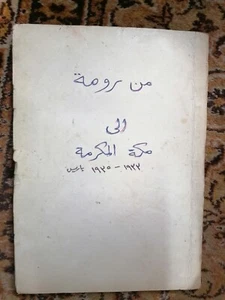 من رومة
الى
مكة المكرمة
١٩٢٢ - ١٩٢٥